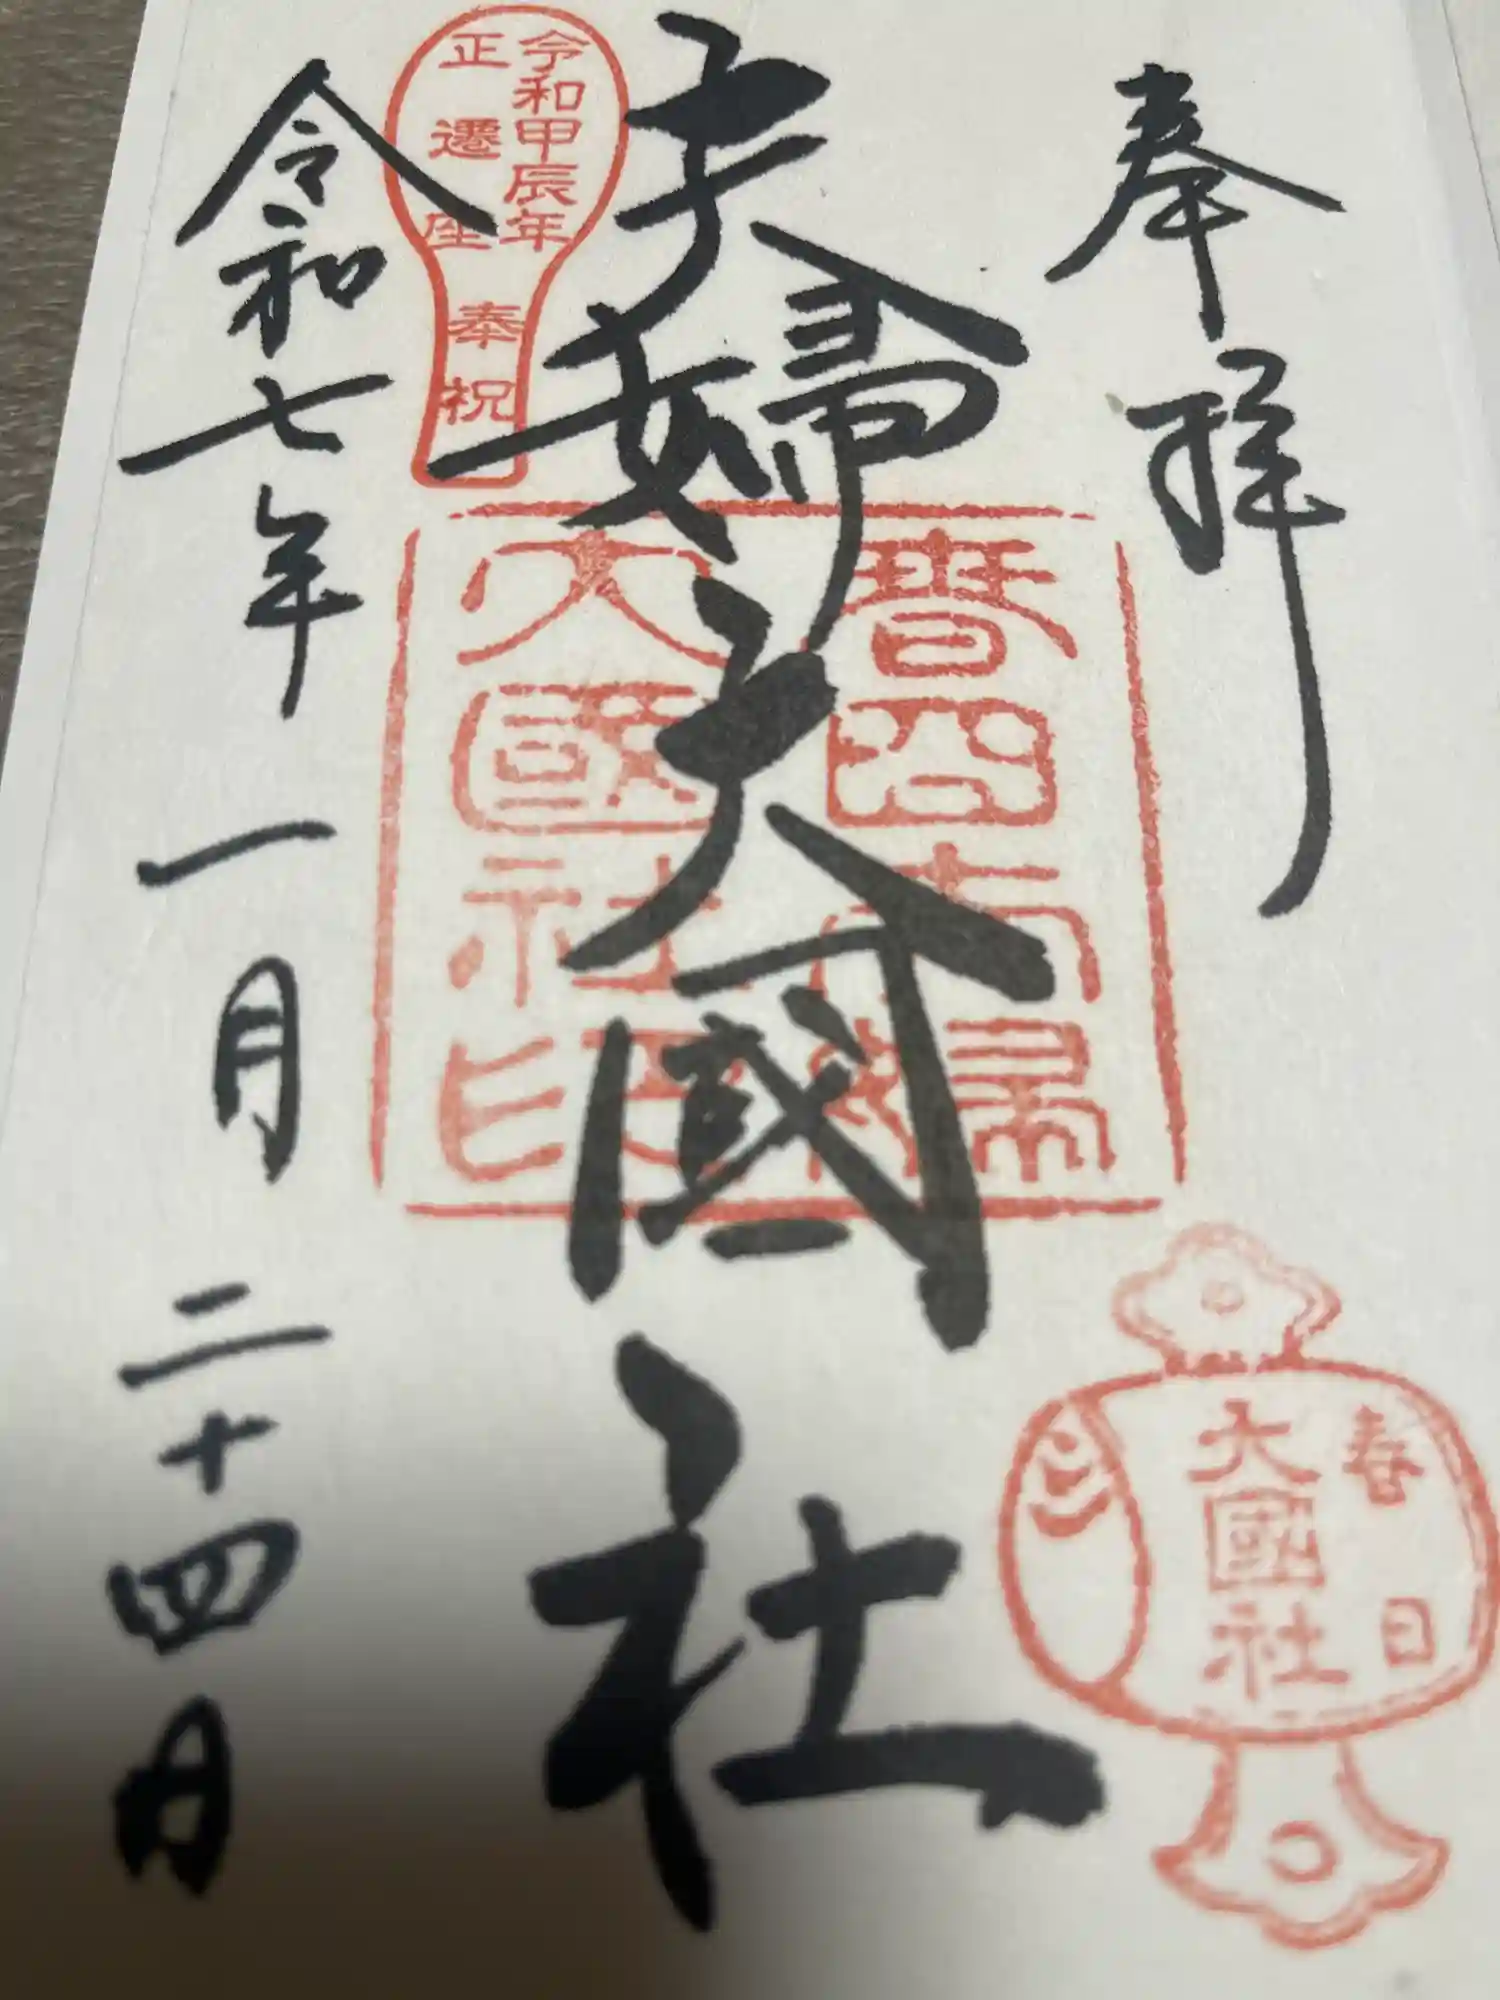 奉拝
夫婦大國社
令和七年一月二十四日
令和甲辰年
正遷座
奉祝
春日夫婦
大國社印
春日
大國社